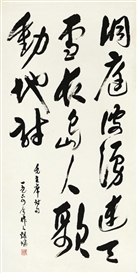 洞庭波涌连天
雪长岛人歌
动地诗
毛主席诗句